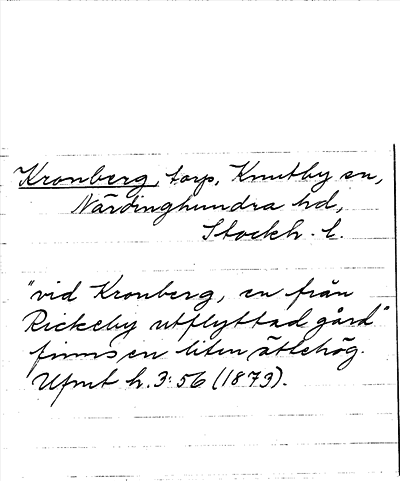 Kronberg, torp, Knutby sn,
Närdinghundra hd,
Stockh. l.
"vid Kronberg, en från
Rickeby utflyttad gård"
finns en liten ättehög.
Ufmt h. 3: 56 (1873).